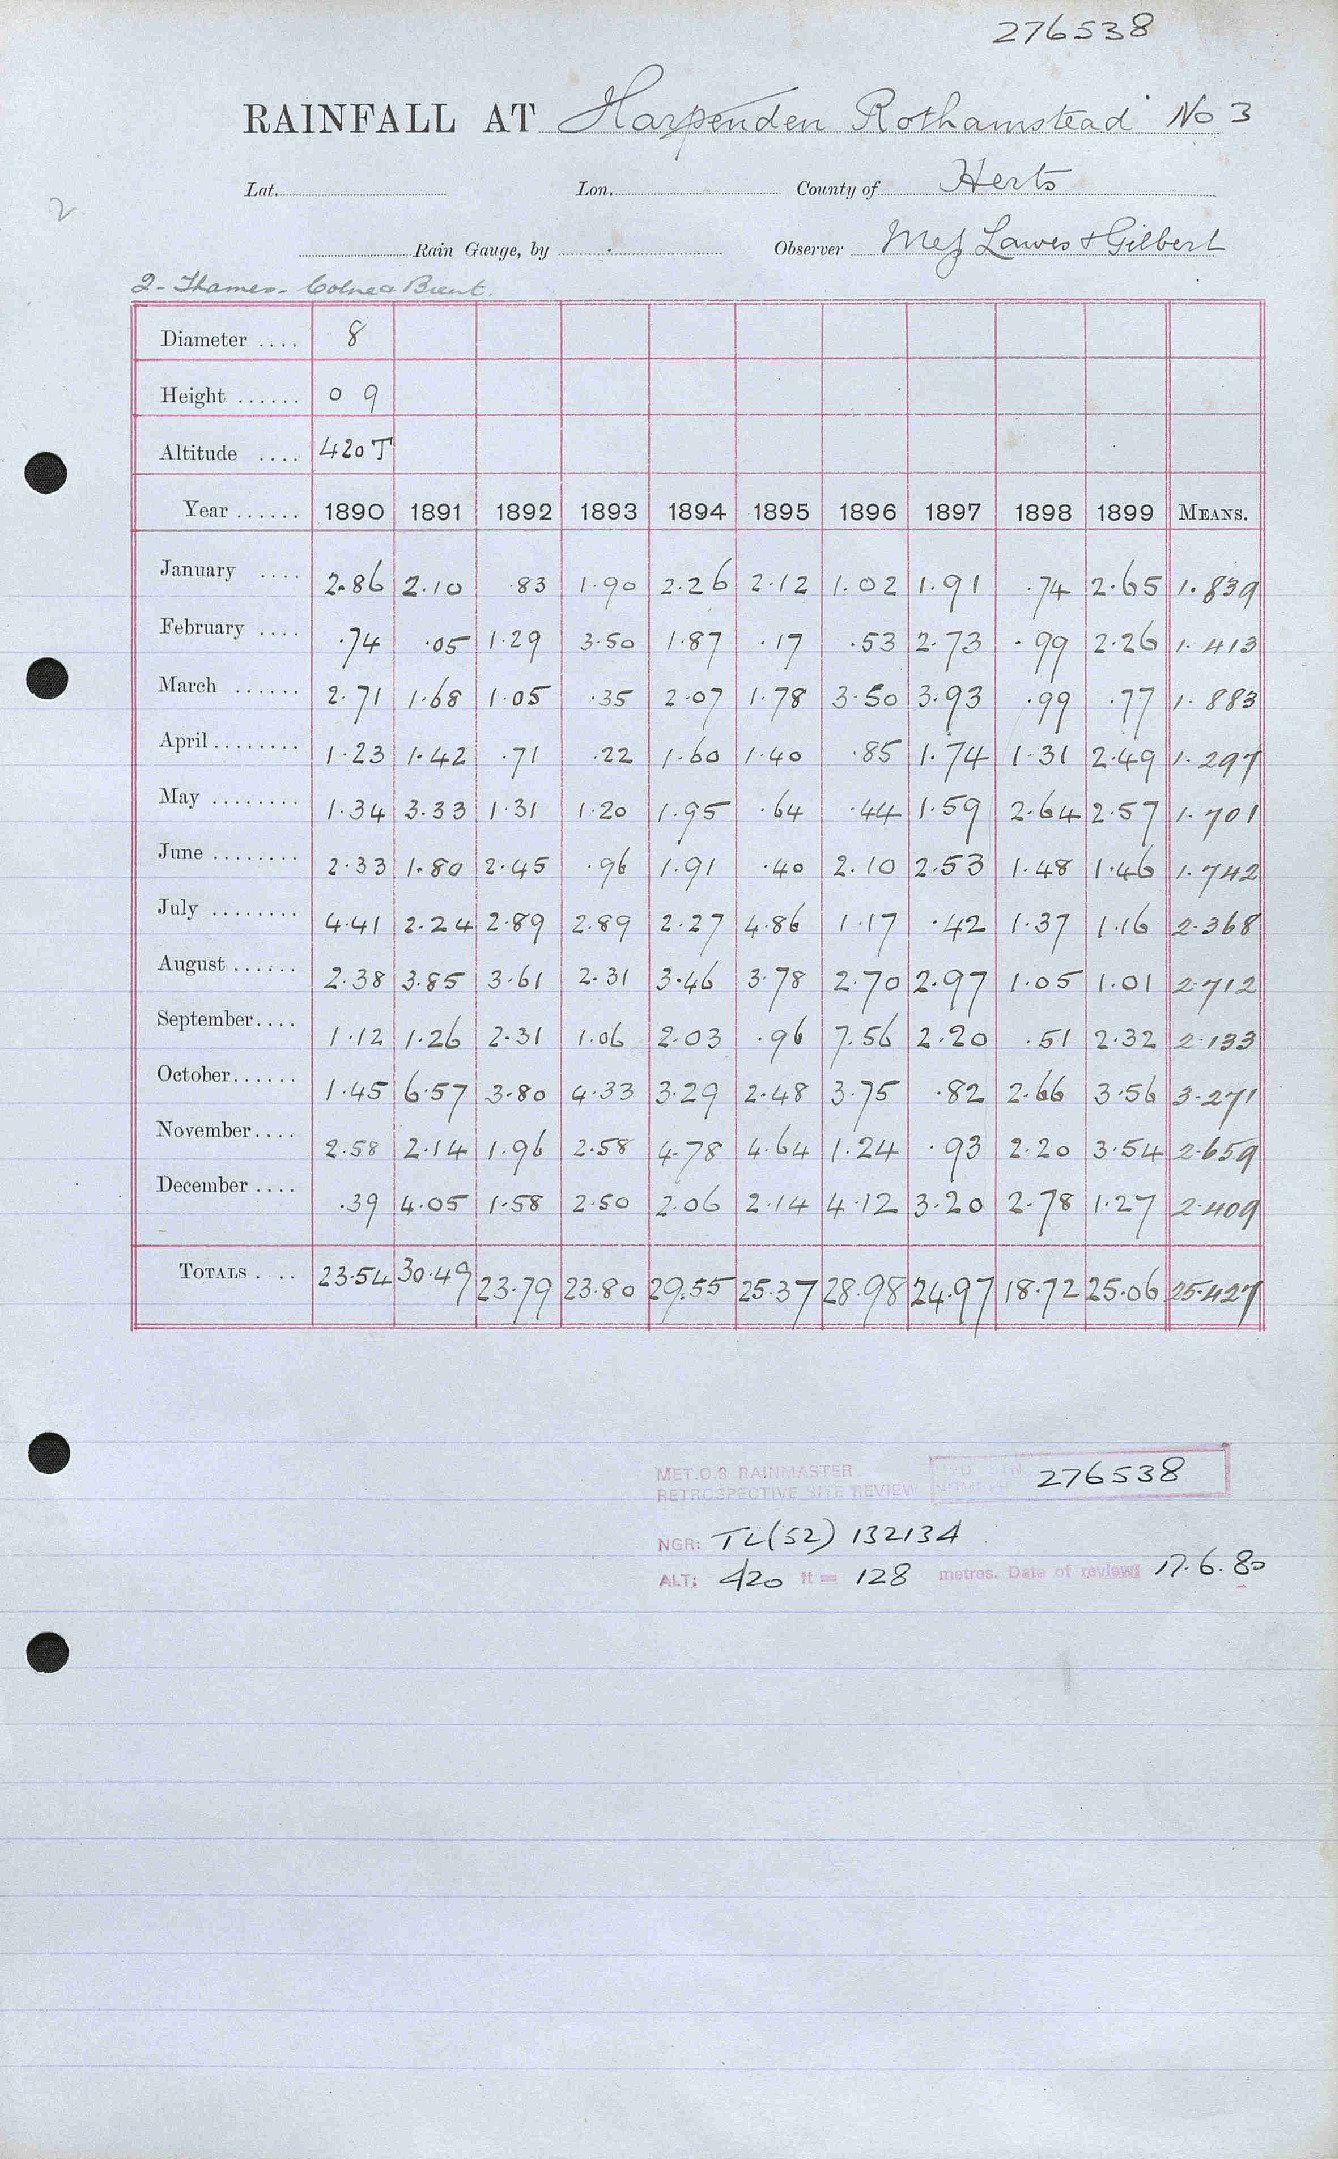 276538
RAINFALL AT Harpenden Rothamstead No 3
Lat. Lon. County of Herts
Rain Gauge, by Observer Mess Lawes & Gilbert
2
2 - Thames - Colne & Brent
Diameter .... 8
Height ...... 0 9
Altitude .... 420 T
Year ...... 1890 1891 1892 1893 1894 1895 1896 1897 1898 1899 MEANS.
January .... 2.86 2.10 .83 1.90 2.26 2.12 1.02 1.91 .74 2.65 1.839
February .... .74 .05 1.29 3.50 1.87 .17 .53 2.73 .99 2.26 1.413
March ...... 2.71 1.68 1.05 .35 2.07 1.78 3.50 3.93 .99 .77 1.883
April ........ 1.23 1.42 .71 .22 1.60 1.40 .85 1.74 1.31 2.49 1.297
May ........ 1.34 3.33 1.31 1.20 1.95 .64 .44 1.59 2.64 2.57 1.701
June ........ 2.33 1.80 2.45 .96 1.91 .40 2.10 2.53 1.48 1.46 1.742
July ........ 4.41 2.24 2.89 2.89 2.27 4.86 1.17 .42 1.37 1.16 2.368
August ...... 2.38 3.85 3.61 2.31 3.46 3.78 2.70 2.97 1.05 1.01 2.712
September.... 1.12 1.26 2.31 1.06 2.03 .96 7.56 2.20 .51 2.32 2.133
October...... 1.45 6.57 3.80 4.33 3.29 2.48 3.75 .82 2.66 3.56 3.271
November.... 2.58 2.14 1.96 2.58 4.78 4.64 1.24 .93 2.20 3.54 2.659
December .... .39 4.05 1.58 2.50 2.06 2.14 4.12 3.20 2.78 1.27 2.409
TOTALS . .. 23.54 30.49 23.79 23.80 29.55 25.37 28.98 24.97 18.72 25.06 25.427
MET.O.8 RAINMASTER
RETROSPECTIVE SITE REVIEW 276538
NGR: TL(52) 132134
ALT: 420 ft = 128 metres. Date of review: 17.6.80